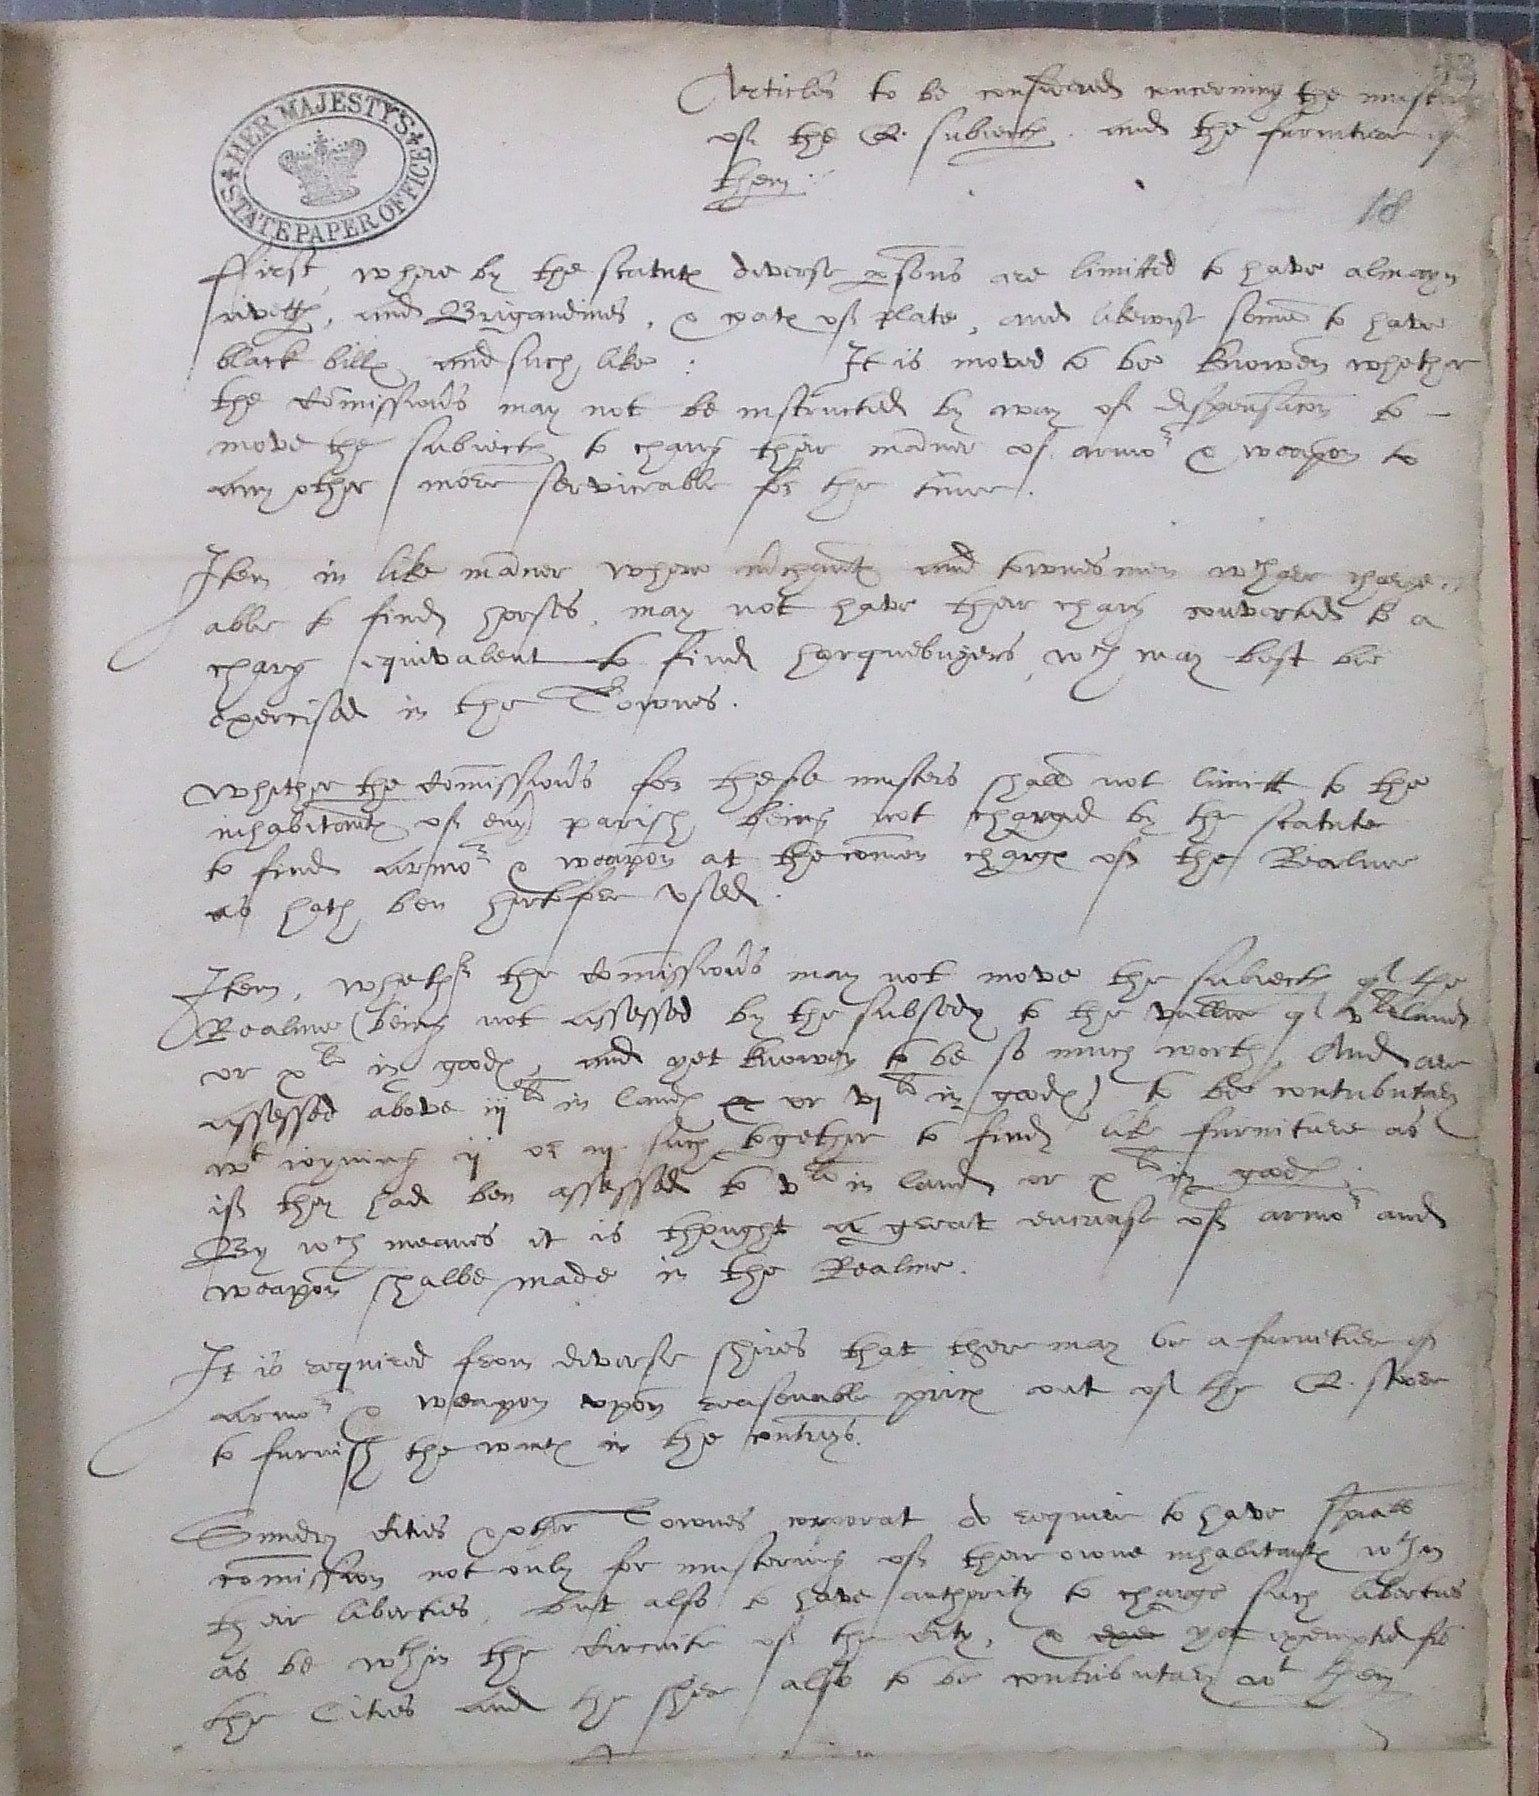 HER MAJESTY'S STATE PAPER OFFICE
43
Articles to be considered concerning the musters
of the Q. subiects and the furniture of
them:
18
First, where by the statute diverse persons are limitted to have almayn
rivetts, and Brigandines, & coats of plate, and likewise some to have
black bills and such like : It is moved to be knowen whether
the Comissioners may not be instructed by way of dispensacon to
move the subiects to chang their maner of armor & weapon to
any other more serviceable for the time.
Item in like maner where merchants and townesmen wch are charge
able to find horses, may not have their charg converted to a
charg equivalent to find harquebuzers, wch may best be
exercised in the Townes.
Whither the Comissioners for these musters shall not limitt to the
inhabitants of every parish being not charged by the statute
to find armor & weapon at the comen charge of the Realme
as hath ben heretofore used.
Item, whether the Comissioners may not move the subiects of the
Realme (being not assessed by the subsedy to the vallew of vli land
or xli in goods, and yet knowen to be so much worth, And are
assessed above iijli in lands or vjli in goods) to be contributary
wt ioyning ij or iij such together to find like furniture as
if they had ben assessed to vli in land or xli in goods:
By wch meanes it is thought a great encrease of armor and
weapon shalbe made in the Realme.
It is required from diverse shires that there may be a furniture of
armor & weapon upon reasonable price out of the Q. store
to furnish the wants in the contreys.
Sundry Cities & other Townes corporat do require to have speciall
comission not only for mustering of their owne inhabitants wthin
their liberties, but also to have authority to charge such liberties
as be wthin the circuite of the City, & yet exempted fro
the Cities and the shere also to be contributary wt them